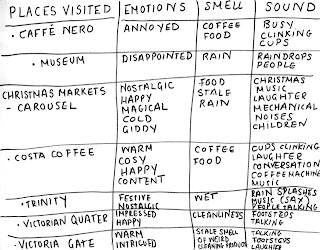 PLACES VISITED EMOTIONS SMELL SOUND
• CAFFÉ NERO ANNOYED COFFEE FOOD BUSY CLINKING CUPS
• MUSEUM DISAPPOINTED RAIN RAINDROPS PEOPLE
CHRISTMAS MARKETS - CAROUSEL NOSTALGIC HAPPY MAGICAL COLD GIDDY FOOD STALE RAIN CHRISTMAS MUSIC LAUGHTER MECHANICAL NOISES CHILDREN
• COSTA COFFEE WARM COSY HAPPY CONTENT COFFEE FOOD CUPS CLINKING LAUGHTER CONVERSATION COFFEE MACHINE MUSIC
• TRINITY FESTIVE NOSTALGIC WET RAIN SPLASHES MUSIC (SAX) PEOPLE TALKING
• VICTORIAN QUATER IMPRESSED HAPPY CLEANLINESS FOOTSTEPS TALKING
VICTORIA GATE WARM INTRIGUED STALE SMELL OF WEIRD CLEANING TALKING FOOTSTEPS LAUGHTER